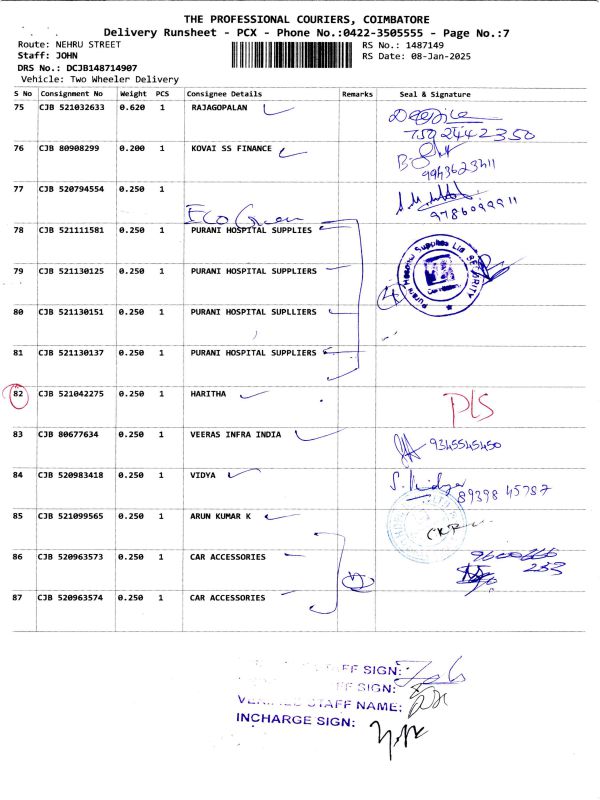 THE PROFESSIONAL COURIERS, COIMBATORE
Delivery Runsheet - PCX - Phone No.:0422-3505555 - Page No.:7
Route: NEHRU STREET RS No.: 1487149
Staff: JOHN RS Date: 08-Jan-2025
DRS No.: DCJB148714907
Vehicle: Two Wheeler Delivery
S No Consignment No Weight PCS Consignee Details Remarks Seal & Signature
75 CJB 521032633 0.620 1 RAJAGOPALAN
7592442350
76 CJB 80908299 0.200 1 KOVAI SS FINANCE
9943623411
77 CJB 520794554 0.250 1
9786099911
Eco Green
78 CJB 521111581 0.250 1 PURANI HOSPITAL SUPPLIES
79 CJB 521130125 0.250 1 PURANI HOSPITAL SUPPLIERS
4
80 CJB 521130151 0.250 1 PURANI HOSPITAL SUPLLIERS
81 CJB 521130137 0.250 1 PURANI HOSPITAL SUPPLIERS
82 CJB 521042275 0.250 1 HARITHA PLS
83 CJB 80677634 0.250 1 VEERAS INFRA INDIA
9345545450
84 CJB 520983418 0.250 1 VIDYA S. Vidya
89398 45787
85 CJB 521099565 0.250 1 ARUN KUMAR K
86 CJB 520963573 0.250 1 CAR ACCESSORIES
233
87 CJB 520963574 0.250 1 CAR ACCESSORIES
FF SIGN:
FF SIGN:
VERIFIED STAFF NAME:
INCHARGE SIGN: